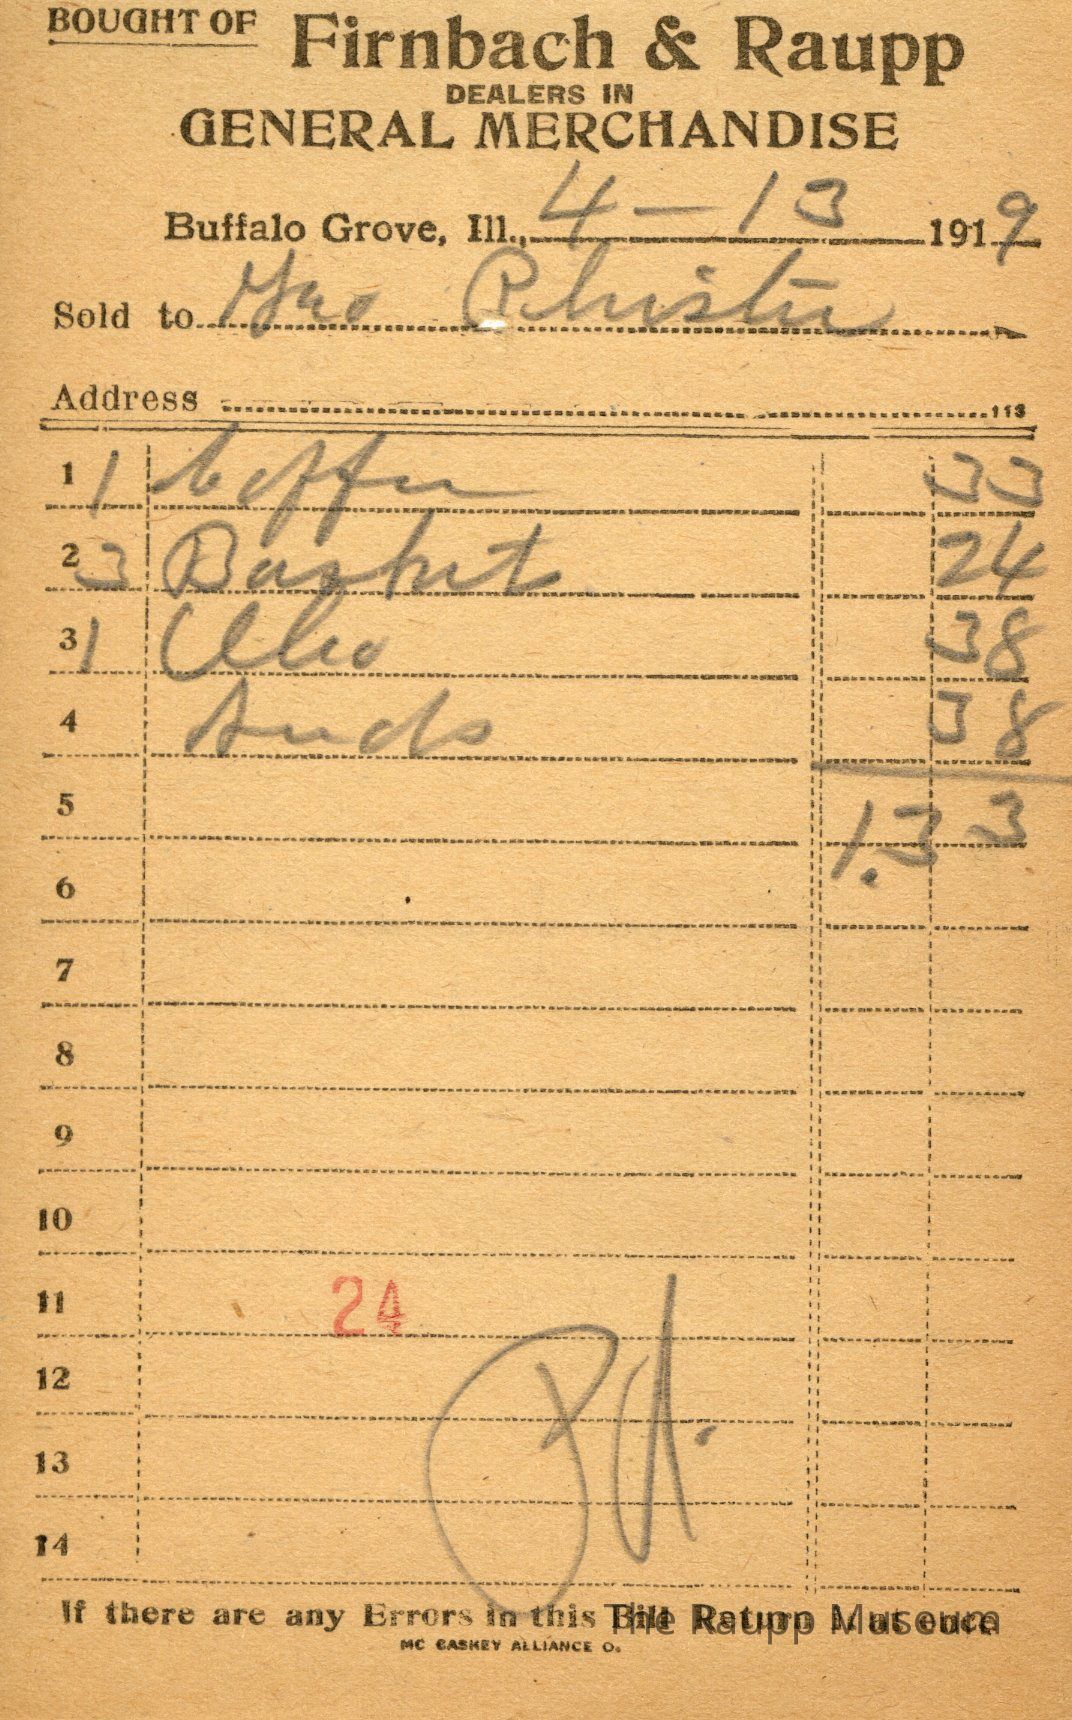 BOUGHT OF Firnbach & Raupp
DEALERS IN
GENERAL MERCHANDISE
Buffalo Grove, Ill., 4-13 1919
Sold to Geo
Address 113
1 1 Coffee 33
2 3 Basket 24
3 1 Oleo 38
4 Suds 38
5 1.33
6
7
8
9
10
11 24
12 Pd.
13
14
If there are any Errors in this Bill Return it at once
The Raupp Museum
MC CASKEY ALLIANCE O.